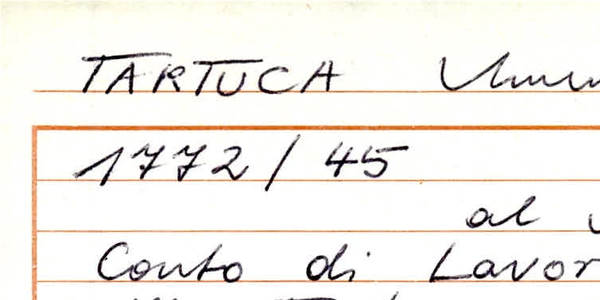 TARTUCA
1772/45
al
Conto di Lavor